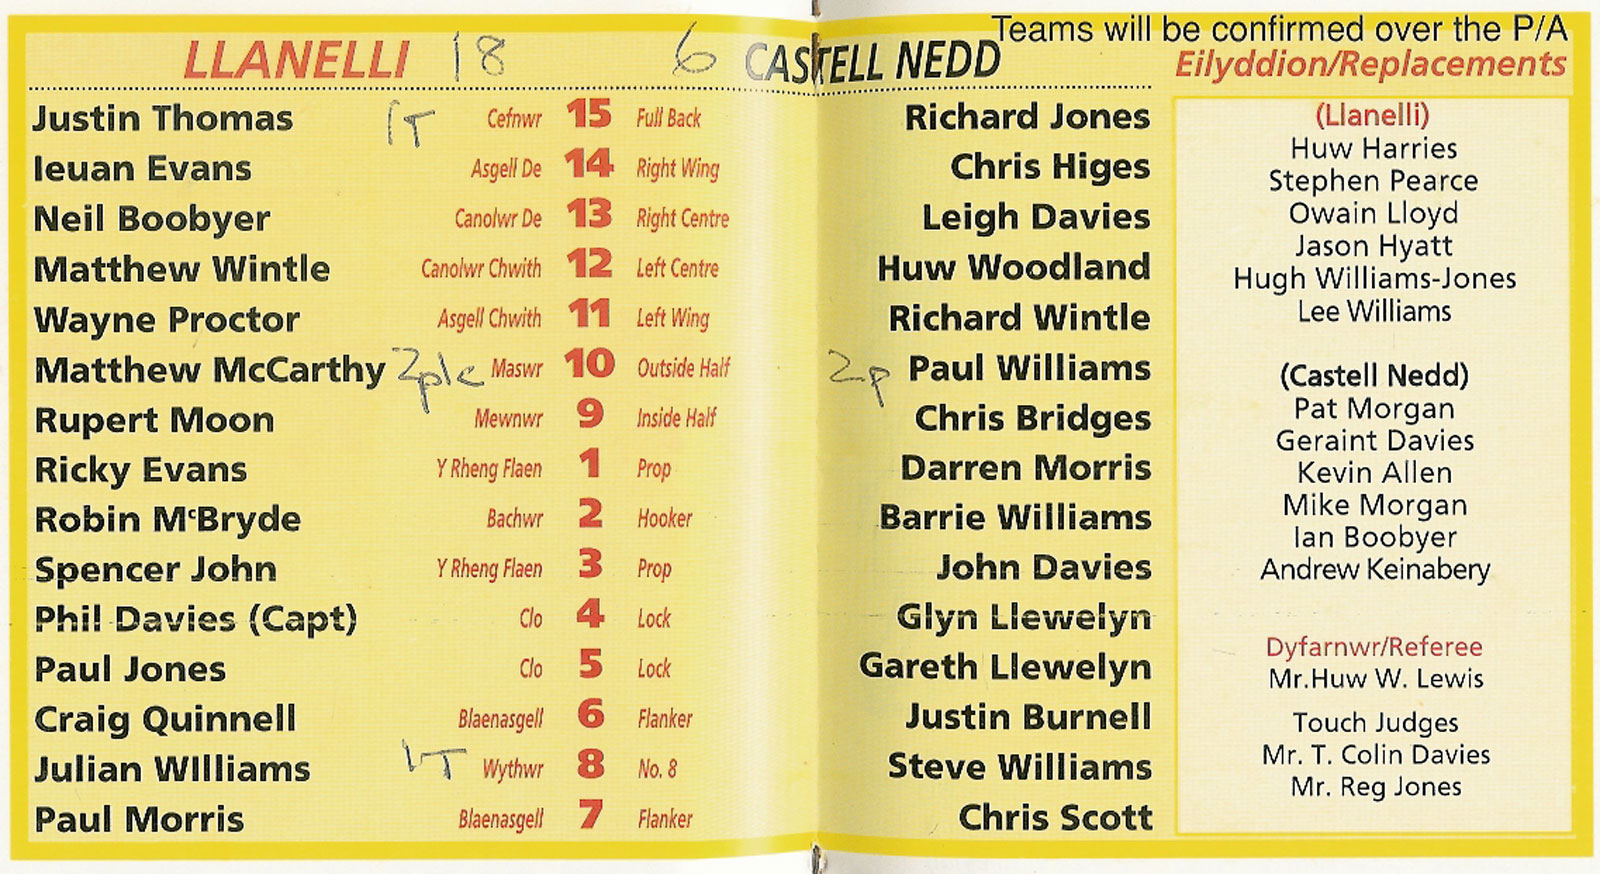 Teams will be confirmed over the P/A
LLANELLI 18 6 CASTELL NEDD
Justin Thomas 1T Cefnwr 15 Full Back Richard Jones
Ieuan Evans Asgell De 14 Right Wing Chris Higes
Neil Boobyer Canolwr De 13 Right Centre Leigh Davies
Matthew Wintle Canolwr Chwith 12 Left Centre Huw Woodland
Wayne Proctor Asgell Chwith 11 Left Wing Richard Wintle
Matthew McCarthy 2plc Maswr 10 Outside Half 2p Paul Williams
Rupert Moon Mewnwr 9 Inside Half Chris Bridges
Ricky Evans Y Rheng Flaen 1 Prop Darren Morris
Robin McBryde Bachwr 2 Hooker Barrie Williams
Spencer John Y Rheng Flaen 3 Prop John Davies
Phil Davies (Capt) Clo 4 Lock Glyn Llewelyn
Paul Jones Clo 5 Lock Gareth Llewelyn
Craig Quinnell Blaenasgell 6 Flanker Justin Burnell
Julian WIlliams 1T Wythwr 8 No. 8 Steve Williams
Paul Morris Blaenasgell 7 Flanker Chris Scott
Eilyddion/Replacements
(Llanelli)
Huw Harries
Stephen Pearce
Owain Lloyd
Jason Hyatt
Hugh Williams-Jones
Lee Williams
(Castell Nedd)
Pat Morgan
Geraint Davies
Kevin Allen
Mike Morgan
Ian Boobyer
Andrew Keinabery
Dyfarnwr/Referee
Mr.Huw W. Lewis
Touch Judges
Mr. T. Colin Davies
Mr. Reg Jones